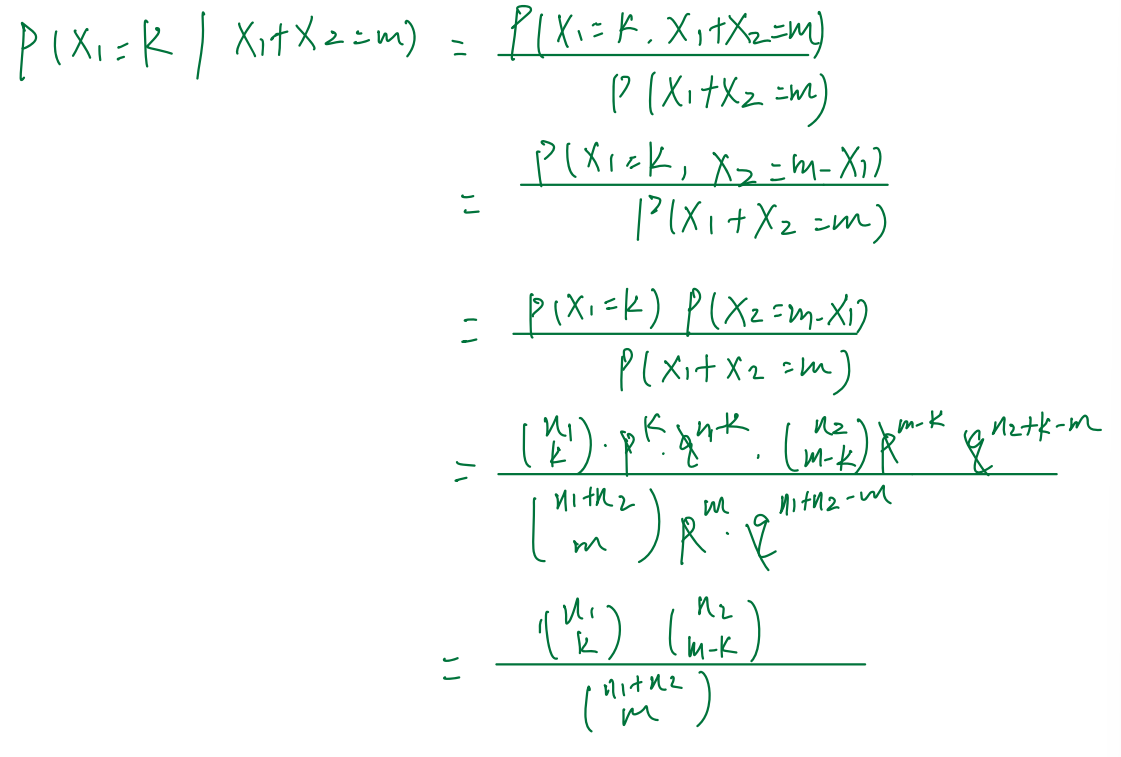 P(X₁=k | X₁+X₂=m) = P(X₁=k, X₁+X₂=m) / P(X₁+X₂=m)
= P(X₁=k, X₂=m-X₁) / P(X₁+X₂=m)
= P(X₁=k) P(X₂=m-X₁) / P(X₁+X₂=m)
= (n₁ k)·p^k·q^(n-k)·(n₂ m-k)p^(m-k) q^(n₂+k-m) / (n₁+n₂ m) p^m·q^(n₁+n₂-m)
= (n₁ k) (n₂ m-k) / (n₁+n₂ m)